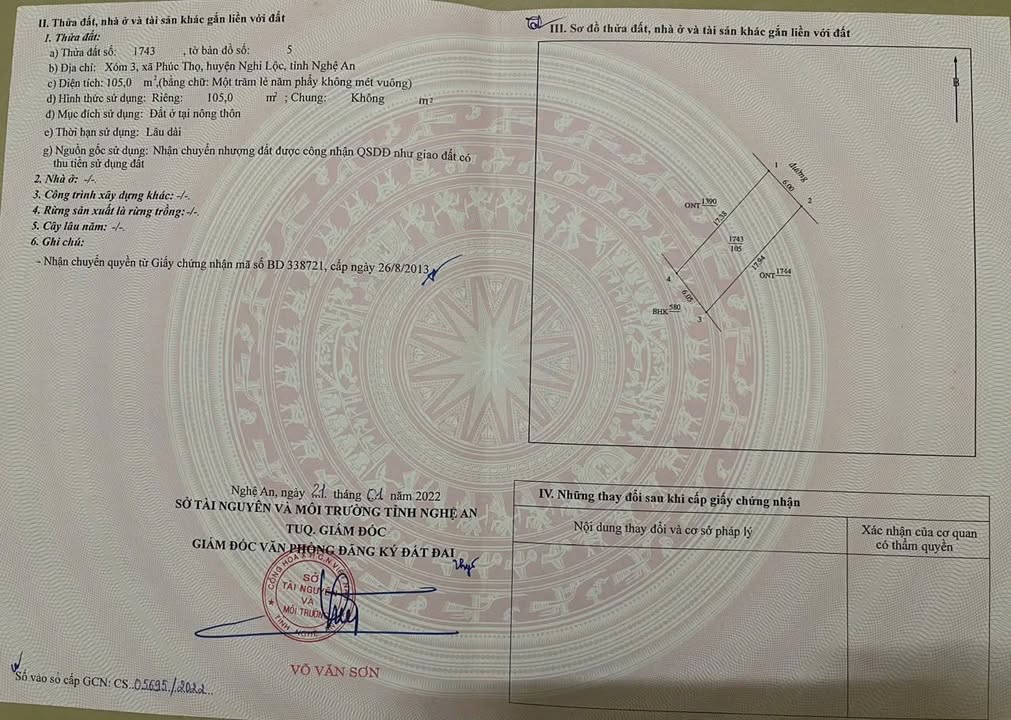 II. Thửa đất, nhà ở và tài sản khác gắn liền với đất
1. Thửa đất:
a) Thửa đất số: 1743 , tờ bản đồ số: 5
b) Địa chỉ: Xóm 3, xã Phúc Thọ, huyện Nghi Lộc, tỉnh Nghệ An
c) Diện tích: 105,0 m²,(bằng chữ: Một trăm lẻ năm phẩy không mét vuông)
d) Hình thức sử dụng: Riêng: 105,0 m² ; Chung: Không m²
đ) Mục đích sử dụng: Đất ở tại nông thôn
e) Thời hạn sử dụng: Lâu dài
g) Nguồn gốc sử dụng: Nhận chuyển nhượng đất được công nhận QSDĐ như giao đất có
thu tiền sử dụng đất
2. Nhà ở: -/-.
3. Công trình xây dựng khác: -/-.
4. Rừng sản xuất là rừng trồng: -/-.
5. Cây lâu năm: -/-.
6. Ghi chú:
- Nhận chuyển quyền từ Giấy chứng nhận mã số BD 338721, cấp ngày 26/8/2013
Nghệ An, ngày 21 tháng 01 năm 2022
SỞ TÀI NGUYÊN VÀ MÔI TRƯỜNG TỈNH NGHỆ AN
TUQ. GIÁM ĐỐC
GIÁM ĐỐC VĂN PHÒNG ĐĂNG KÝ ĐẤT ĐAI
SỞ
TÀI NGUYÊN
VÀ
MÔI TRƯỜNG
VÕ VĂN SƠN
Số vào sổ cấp GCN: CS..05695./2022...
III. Sơ đồ thửa đất, nhà ở và tài sản khác gắn liền với đất
B
1
đường
6.00
2
ONT 1390
17.38
1743
105
17.94
ONT 1744
4
6.05
BHK 580
3
IV. Những thay đổi sau khi cấp giấy chứng nhận
Nội dung thay đổi và cơ sở pháp lý
Xác nhận của cơ quan
có thẩm quyền